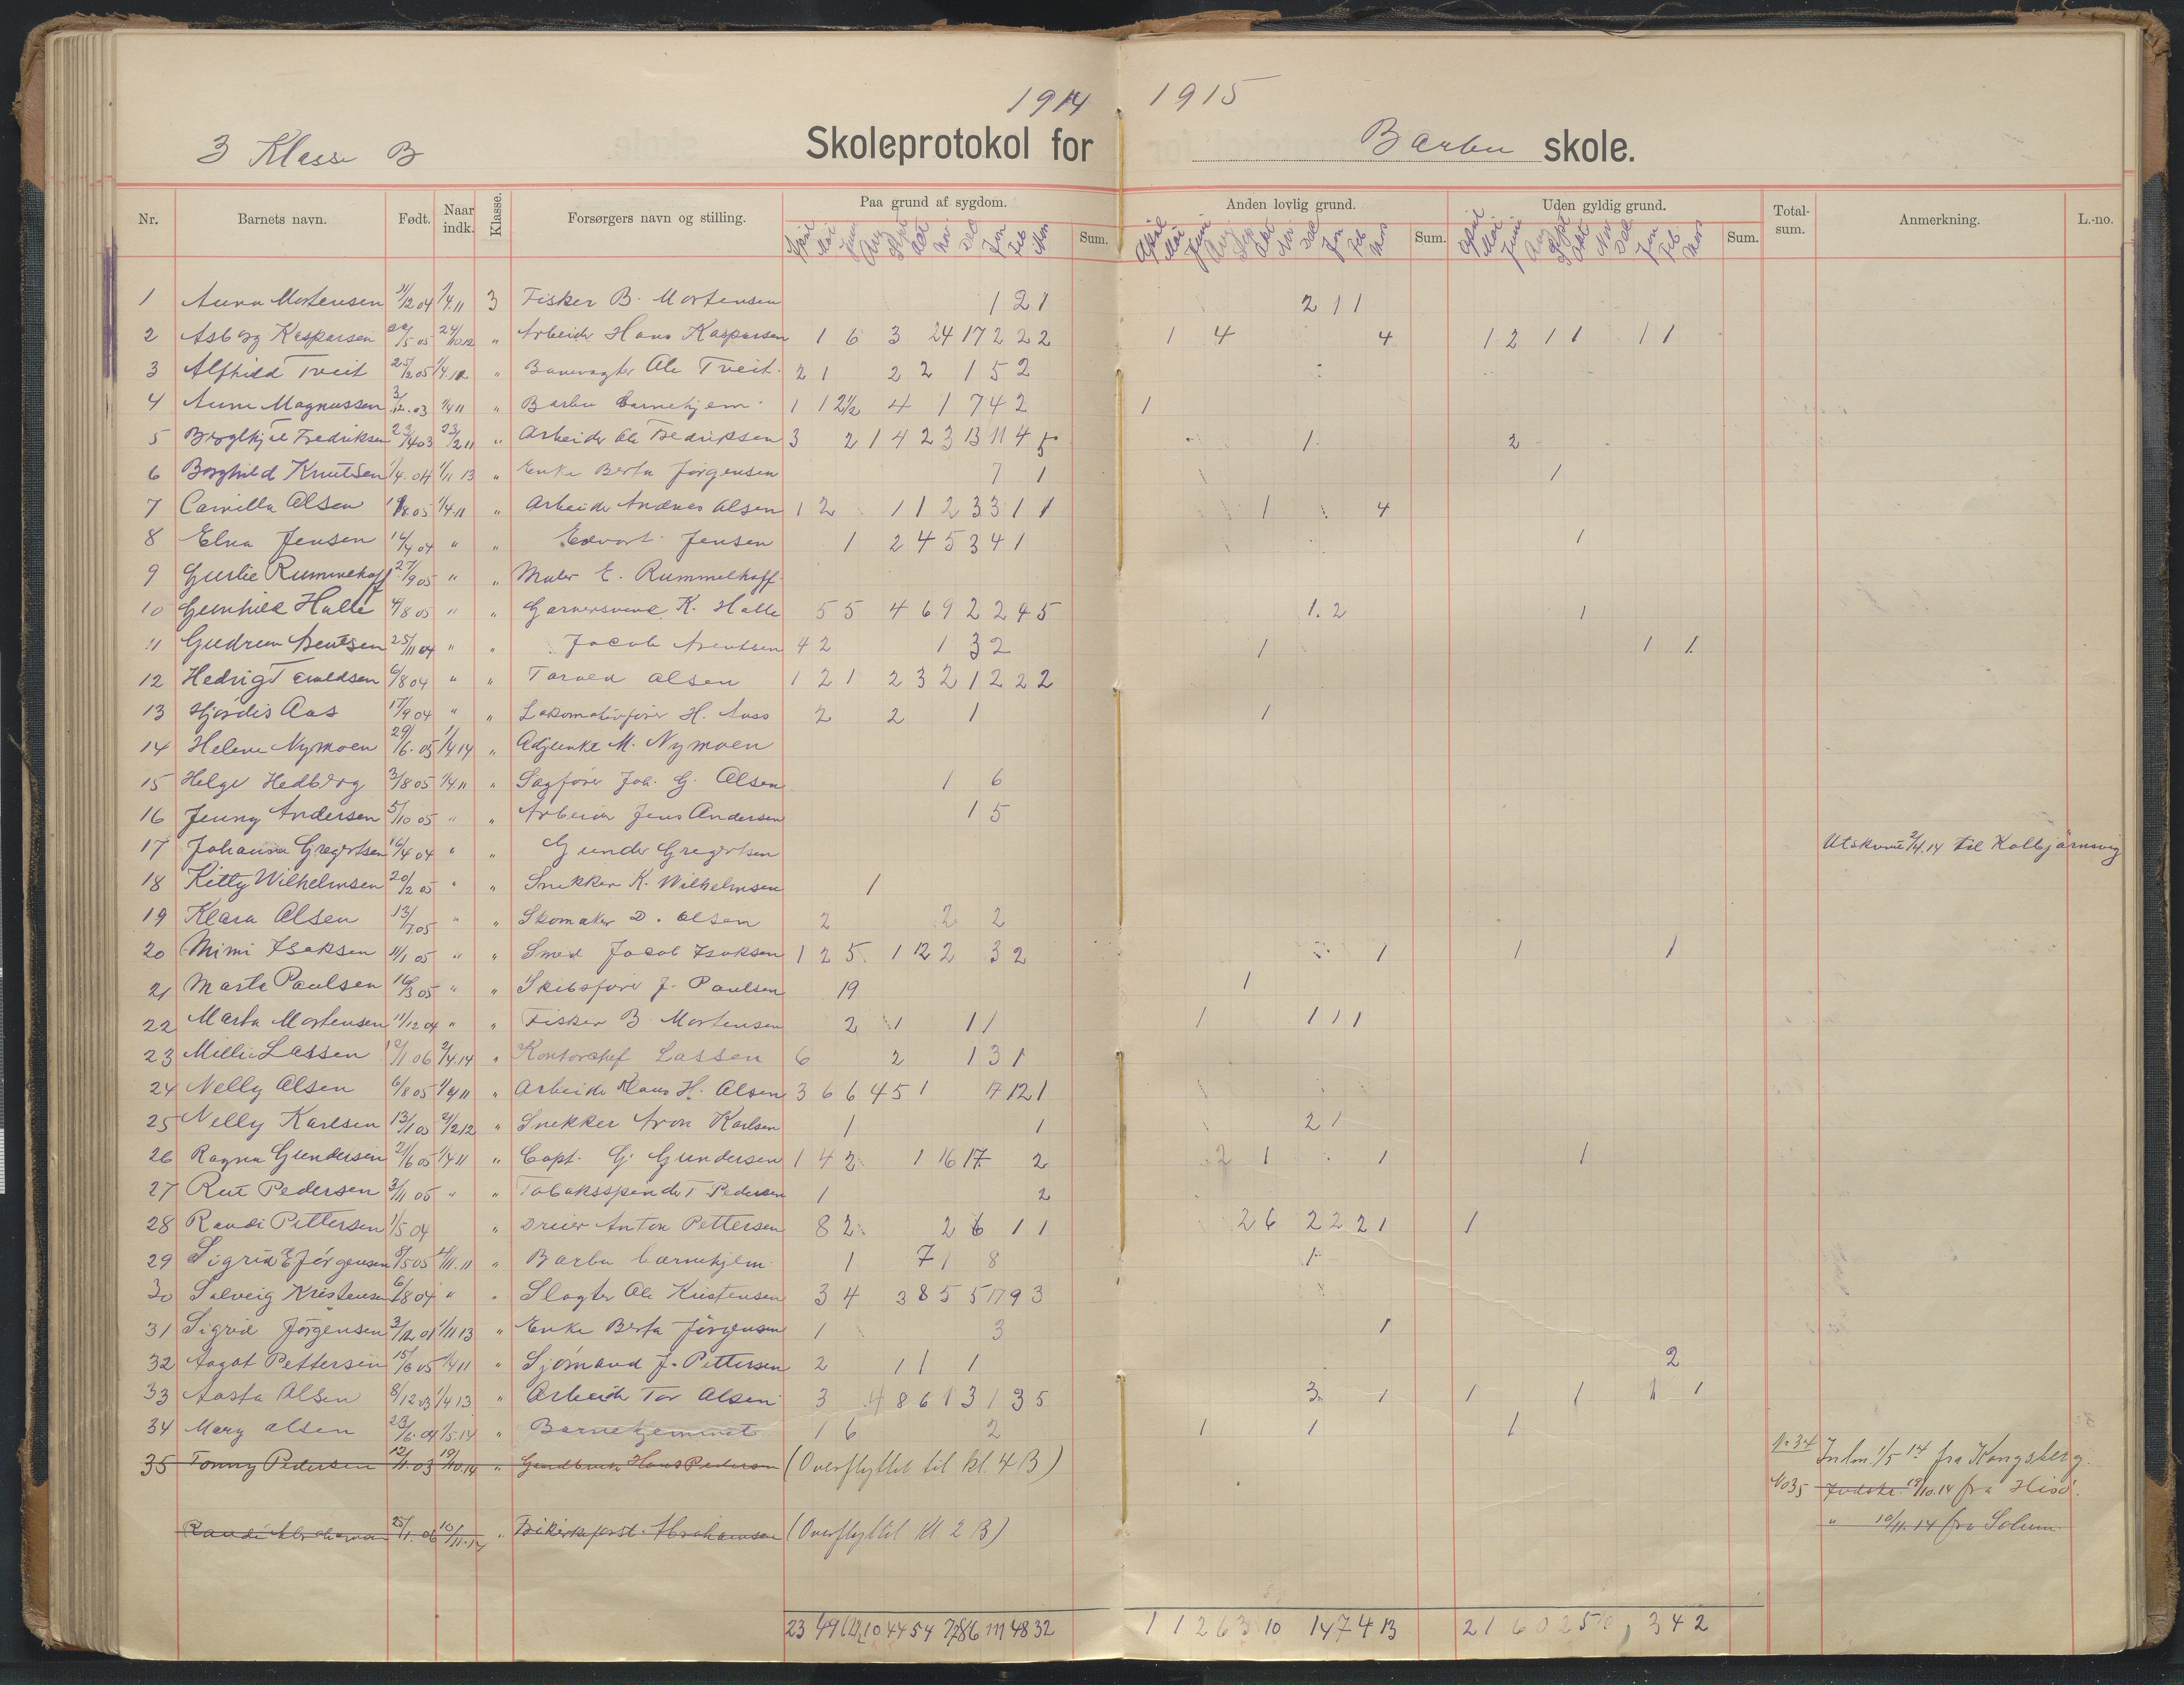 1914 1915
3 Klasse B Skoleprotokol for Barbu skole.
Nr. Barnets navn. Født. Naar indk. Klasse. Forsørgers navn og stilling. Paa grund af sygdom. Sum. Anden lovlig grund. Sum. Uden gyldig grund. Sum. Total-sum. Anmerkning. L.-no.
April Mai Juni Aug Sept Okt Nov Dec Jan Feb Mars April Mai Juni Aug Sep Okt Nov Dec Jan Feb Mars April Mai Juni Aug Sept Okt Nov Dec Jan Feb Mars
1 Anna Mortensen 11/12 04 1/4.11 3 Fisker B. Mortensen 1 2 1 2 1 1
2 Asborg Kaspersen 5 05 24/10 12 " Arbeider Hans Kaspersen 1 6 3 24 17 2 2 2 1 4 4 1 2 1 1 1 1
3 Alfhild Tveit 25/12 05 1/4.12 " Banevagter Ole Tveit. 2 1 2 2 1 5 2
4 Anna Magnussen 3/12.03 1/4 11 " Barbu barnehjem 1 1 2½ 4 1 7 4 2 1
5 Fredriksen 23/4 03 23/2 11 " Arbeider Ole Fredriksen 3 2 1 4 2 3 13 11 4 5 1 2
6 Borghild Knutsen 1/4.04 1/11 13 " Enke Berta Jørgensen 7 1 1
7 Camilla Olsen 8.05 1/4.11 " Arbeider Andreas Olsen 1 2 1 1 2 3 3 1 1 1 4
8 Elna Jensen 14/4 04 " " Edvart Jensen 1 2 4 5 3 4 1 1
9 Gurlie Rummelhoff 27/9 05 " " Maler E. Rummelhoff
10 Gunhild Halle 4/8 05 " " Garversvend K. Halle 5 5 4 6 9 2 2 4 5 1. 2 1
11 Gudrun Arentsen 25/11 04 " " Jacob Arentsen 4 2 1 3 2 1 1 1
12 Hedvig Tarvaldsen 6/8 04 " " Tarved Olsen 1 2 1 2 3 2 1 2 2 2
13 Hjørdis Aas 17/9 04 " " Lokomotivfører H. Aass 2 2 1 1
14 Helene Nymoen 29/6.05 1/4 14 " Adjunkt M. Nymoen
15 Helga Hedberg 3/8 05 1/4.11 " Sagfører Joh. G. Olsen 1 6
16 Jenny Andersen 5/10 05 " " Arbeider Jens Andersen 1 5
17 Johanna Gregertsen 16/4 04 " " Gunder Gregertsen Utskrevet 2/4.14 til Kolbjørnsvig
18 Kitty Wilhelmsen 20/2 05 " " Snekker K. Wilhelmsen 1
19 Klara Olsen 13/7.05 " " Skomaker D. Olsen 2 2 2
20 Mimi Isaksen 11/1 05 " " Smed Jacob Isaksen 1 2 5 1 12 2 3 2 1 1 1
21 Marta Paulsen 16/3 05 " " Skibsfører J. Paulsen 19 1
22 Marta Mortensen 11/12 04 " " Fisker B Mortensen 2 1 1 1 1 1 1 1
23 Milli Lassen 12/1 06 2/4.14 " Kontorchef Lassen 6 2 1 3 1
24 Nelly Olsen 6/8 05 1/4 11 " Arbeider Klaus H. Olsen 3 6 6 4 5 1 17 12 1
25 Nelly Karlsen 13/1 05 2/2 12 " Snekker Aron Karlsen 1 1 2 1
26 Ragna Gundersen 2/6 05 1/4 11 " Capt. G. Gundersen 1 4 2 1 16 17 2 2 1 1 1
27 Rut Pedersen 3/11 05 " " Tobaksspinder T Pedersen 1 2
28 Randi Pettersen 1/5 04 " Dreier Anton Pettersen 8 2 2 6 1 1 2 6 2 2 2 1 1
29 Sigrid E Jørgensen 8/5 05 2/11.11 " Barbu barnehjem 1 7 1 8 1
30 Solveig Kristensen 6/8 04 " " Slagter Ole Kristensen 3 4 3 8 5 5 17 9 3
31 Sigrid Jørgensen 3/12 01 1/11 13 " Enke Berta Jørgensen 1 3 1
32 Aagot Pettersen 15/6 05 1/4 11 " Sjømand J. Pettersen 2 1 1 1 2
33 Aasta Olsen 8/12 03 1/4 13 " Arbeider Tor Olsen 3 4 8 6 1 3 1 3 5 3 1 1 1 1 1
34 Mary Olsen 23/6.04 1/5.14 " Barnehjemmet 1 6 2 1 1 1
No 34 Indm. 1/5 14 fra Kongsberg.
35 Tonny Pedersen 12/1.03 19/10.14 " Hans Pedersen (Overflyttet til kl. 4 B)
No 35 19/10.14 fra Hisø.
Randi Abrahamsen 25/1.06 10/11.14 " Abrahamsen (Overflyttet kl. 2 B)
" 10/11.14 fra Solum